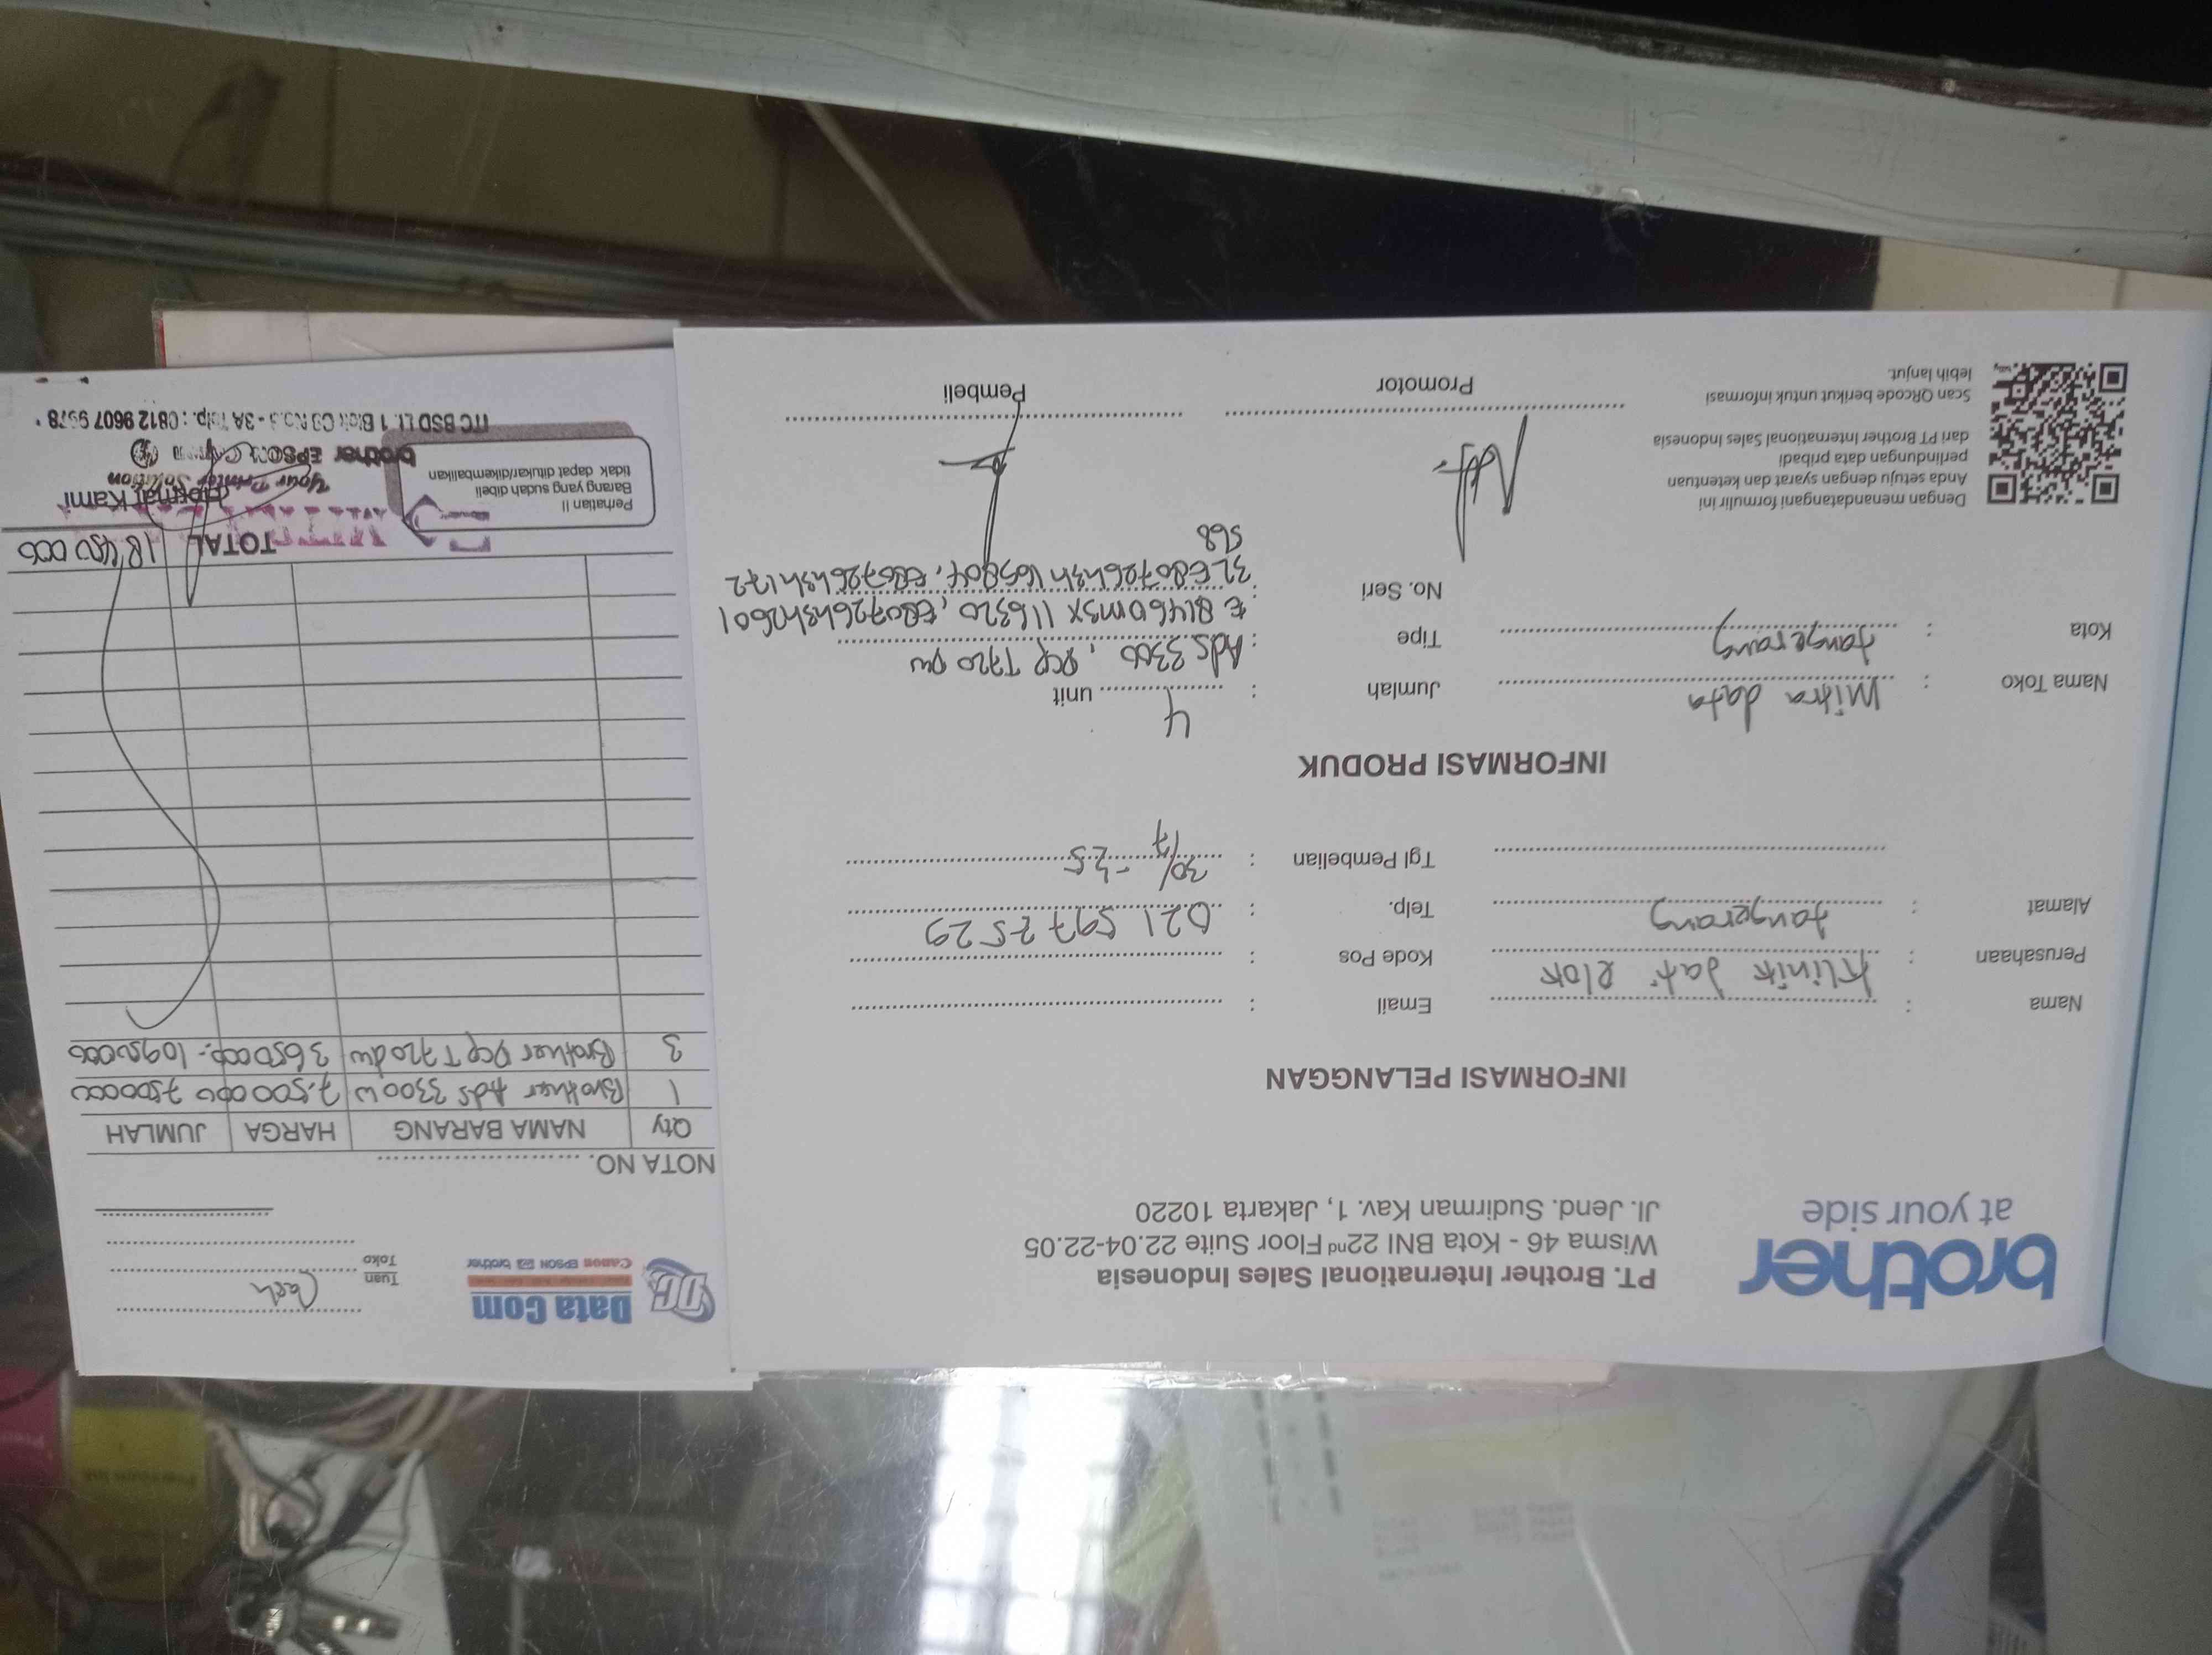 brother
at your side
PT. Brother International Sales Indonesia
Wisma 46 - Kota BNI 22nd Floor Suite 22.04-22.05
Jl. Jend. Sudirman Kav. 1, Jakarta 10220
INFORMASI PELANGGAN
Nama : Klinik Jati elok
Perusahaan :
Alamat : tangerang
Email :
Kode Pos :
Telp. : 021 5977529
Tgl Pembelian : 30/7 - 25
INFORMASI PRODUK
Nama Toko : Mitra data
Kota : tangerang
Jumlah : 4 unit
Tipe : Ads 3300, DCP T720 DW
No. Seri :
568
Dengan menandatangani formulir ini
Anda setuju dengan syarat dan ketentuan
perlindungan data pribadi
dari PT Brother International Sales Indonesia
Scan QRcode berikut untuk informasi
lebih lanjut.
Promotor
Pembeli
DC Data Com
Canon EPSON brother
Tuan Cash
Toko
NOTA NO.
Qty NAMA BARANG HARGA JUMLAH
1 Brother Ads 3300w 7.500000 7500000
3 Brother DCP T720dw 3650000 10950000
TOTAL 18.450 000
Perhatian !!
Barang yang sudah dibeli
tidak dapat ditukar/dikembalikan
Hormat Kami
Your Printer Solution
brother EPSON Canon
ITC BSD Lt. 1 Blok C9 No.3 - 3A Telp. : 0812 9607 9578